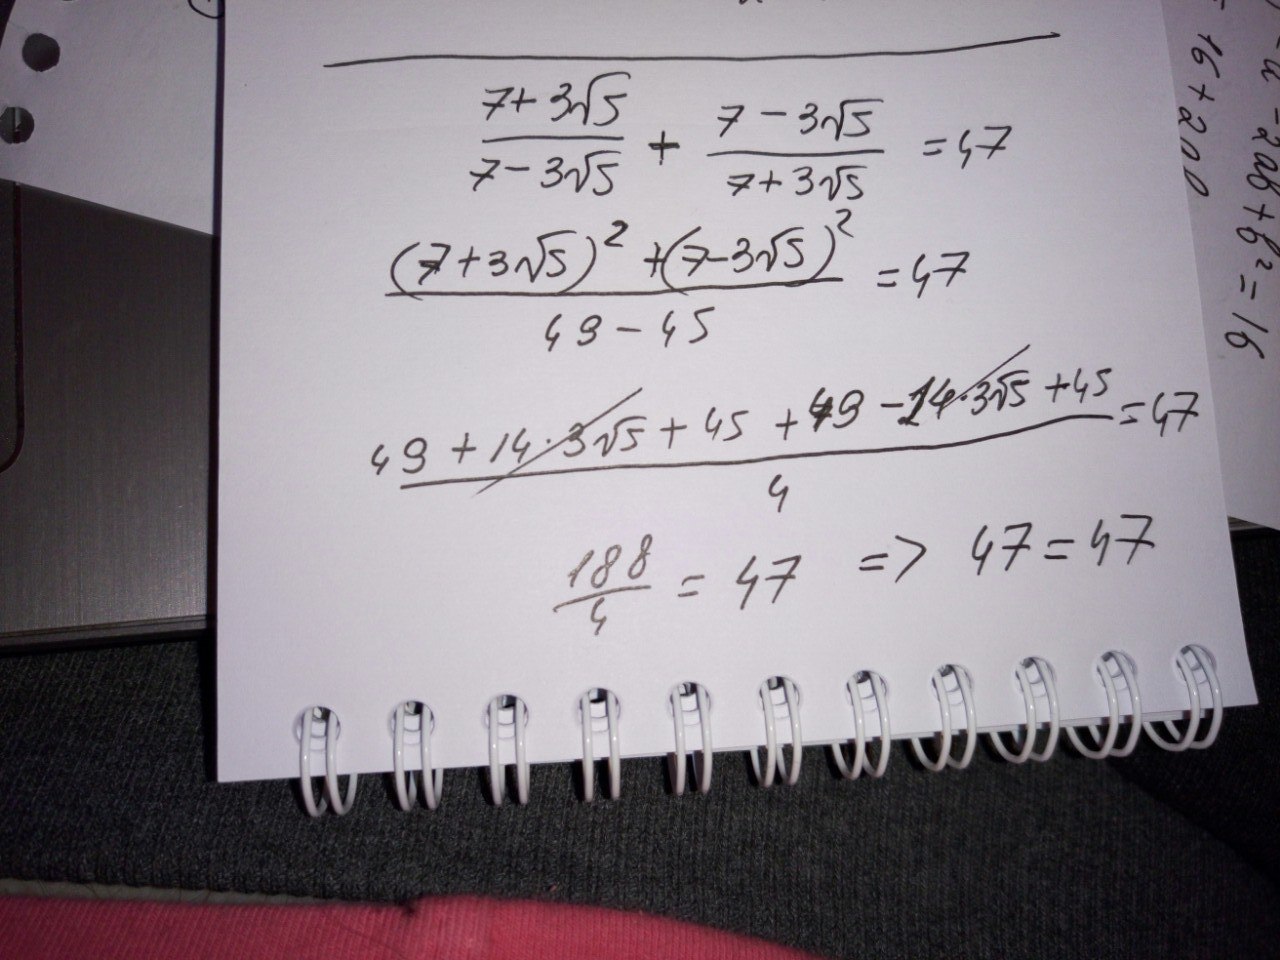 (7+3√5)/(7-3√5) + (7-3√5)/(7+3√5) = 47
((7+3√5)² + (7-3√5)²)/(49-45) = 47
(49 + 14·3√5 + 45 + 49 - 14·3√5 + 45)/4 = 47
188/4 = 47 => 47 = 47
-2ab + b² = 16
16 + 2